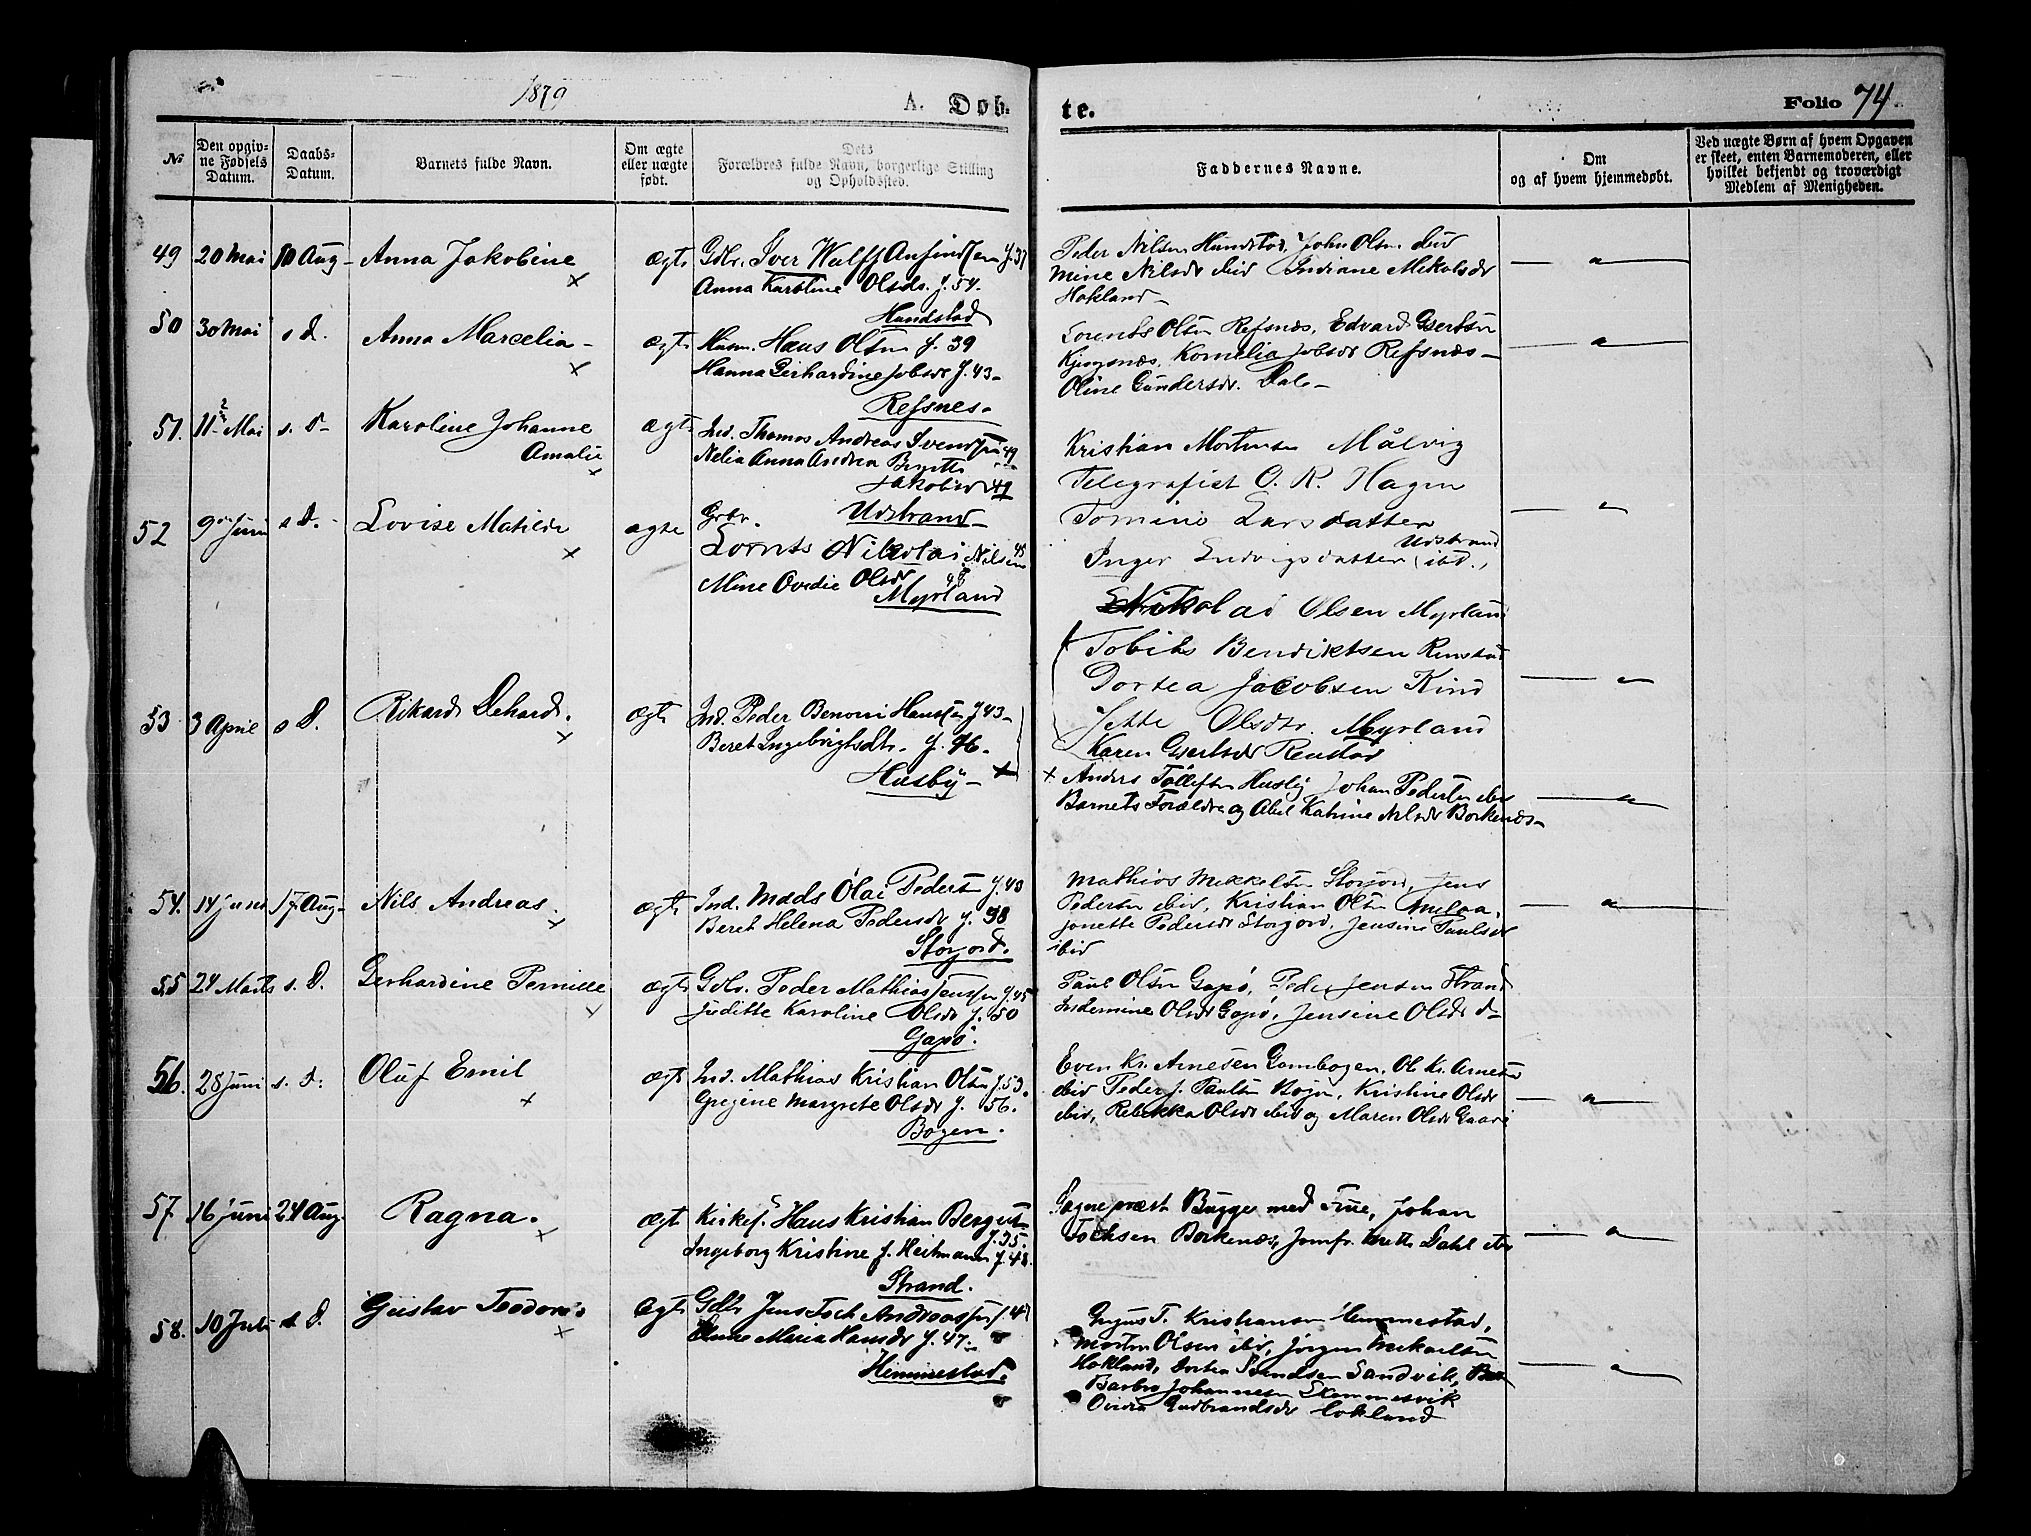 1879 A. Døb- te. Folio 74.
№ Den opgivne Fødsels Datum. Daabs-Datum. Barnets fulde Navn. Om ægte eller uægte født. Dets Forældres fulde Navn, borgerlige Stilling og Opholdssted. Faddernes Navne. Om og af hvem hjemmedøbt. Ved uægte Børn af hvem Opgaven er skeet, enten Barnemoderen, eller hvilket bekjendt og troværdigt Medlem af Menigheden.
49 20 Mai 10 Aug- Anna Jakobine ægte Gdbr. Iver Wulff Anfindsen f. 37
Anna Karoline Olsdr. f. 54.
Hundstad
Peder Nilsen Hundstad, John Olsen ibid
Mine Nilsdr ibid Indiane Mikalsdr
Hokland-
50 30 Mai s D. Anna Marcelia- ægte Husm. Hans Olsen f. 39
Hanna Gerhardine Jobsdr f. 43-
Refsnes.
Lorents Olsen Refsnæs, Edvard Gjertsen
Kjengsnæs, Kornelia Jobsdr Refsnæs-
Oline Gundersdr. Dale-
51. 11 Mai s. D- Karoline Johanne
Amalie
ægte Ind. Thomas Andreas Svendsen 49
Nelia Anna Andrea Beritte
Jakobsdr 49
Udstrand-
Kristian Mortensen Målvig
Telegrafist O. R. Hagen
Tomine Larsdatter
Udstrand
Inger Ludvigsdatter ibd.,
52 9 Juni s D. Lovise Matilde ægte Grbr.
Lornts Nikolai Nilsen 45
Mine Ovedie Olsdr 48
Myrland
Nikolai Olsen Myrland
Tobias Bendiktsen Renstad
Dortea Jacobsen Kind
Jette Olsdtr. Myrland
Karen Gjertsdr Renstad
53 3 April s D. Rikard Dehard. ægte Ind. Peder Benoni Hansen f 43-
Beret Ingebrigtsdtr. f. 46.
Husby-
+ Anders Tollefsen Husby Johan Pedersen ibid
Barnets Forældre og Abel Katrine Nilsdr Borkenæs-
54. 14 Juni 17 Aug- Nils Andreas. ægte Ind. Mads Olai Pedersen f. 43
Beret Helena Pedersdr f. 38
Storjord.
Mathias Mikkelsen Storjord, Jens
Pedersen ibid, Kristian Olsen Melaa.
Jonette Pedersdr Storjord, Jensine Paulsdr
ibid
55 24 Marts s. D. Gerhardine Pernille ægte Gdbr. Peder Mathias Jensen f. 45
Juditte Karoline Olsdr f. 50
Gapø.
Paul Olsen Gapø, Peder Jensen Strand
Indermine Olsdr Gapø, Jensine Olsdr d-
56. 28 Juni s. D. Oluf Emil ægte Ind. Mathias Kristian Olsen f. 53.
Gregine Margrete Olsdr f. 56.
Bogen.
Even Kr. Arnesen Gambogen, Ol K. Arnesen
ibid Peder J. Paulsen Bogen, Kristine Olsdr
ibid, Rebekka Olsdr ibid og Maren Olsdr Gaare
57 16 Juni 24 Aug. Ragna. ægte Kirkes. Hans Kristian Bergersen
f. 35.
Ingeborg Kristine f. Heitmann f. 41.
Strand.
Sogneprest Bugge med Frue, Johan
Tochsen Borkenæs, Jomfr. Dahl ibid
58. 10 Juli s D. Gustav Teodor. ægte Gdbr Jens Foch Andreassen f. 47
Anne Maria Hansdr f. 47.
Himmestad.
T. Kristiansen Hemmestad,
Morten Olsen ibid, Jørgen Mikaelsen
Hokland, Dortea Sandvik,
Barbro Johannesen Skommesvik
Ovidia Gudbrandsdr Hokland